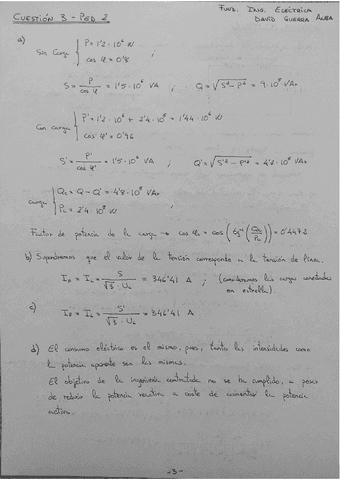 CUESTIÓN 3 - PED 2
FUND. ING. ELÉCTRICA
DAVID GUERRA ALBA
a)
Sin carga { P = 1'2·10⁶ W
cos φ = 0'8
S = P / cos φ = 1'5·10⁶ VA ; Q = √(S² - P²) = 9·10⁵ VAr
Con carga { P' = 1'2·10⁶ + 2'4·10⁵ = 1'44·10⁶ W
cos φ' = 0'96
S' = P' / cos φ' = 1'5·10⁶ VA ; Q' = √(S'² - P'²) = 4'2·10⁵ VAr
carga { Qc = Q - Q' = 4'8·10⁵ VAr
Pc = 2'4·10⁵ W
Factor de potencia de la carga → cos φc = cos (tg⁻¹ (Qc / Pc)) = 0'4472
b) Supondremos que el valor de la tensión corresponde a la tensión de línea.
IF = IL = S / √3·UL = 346'41 A ; (consideramos las cargas conectadas
en estrella).
c)
IF = IL = S' / √3·UL = 346'41 A
d) El consumo eléctrico es el mismo, pues, tanto las intensidades como
la potencia aparente son las mismas.
El objetivo de la ingeniería contratada no se ha cumplido, a pesar
de reducir la potencia reactiva a coste de aumentar la potencia
activa.
-3-